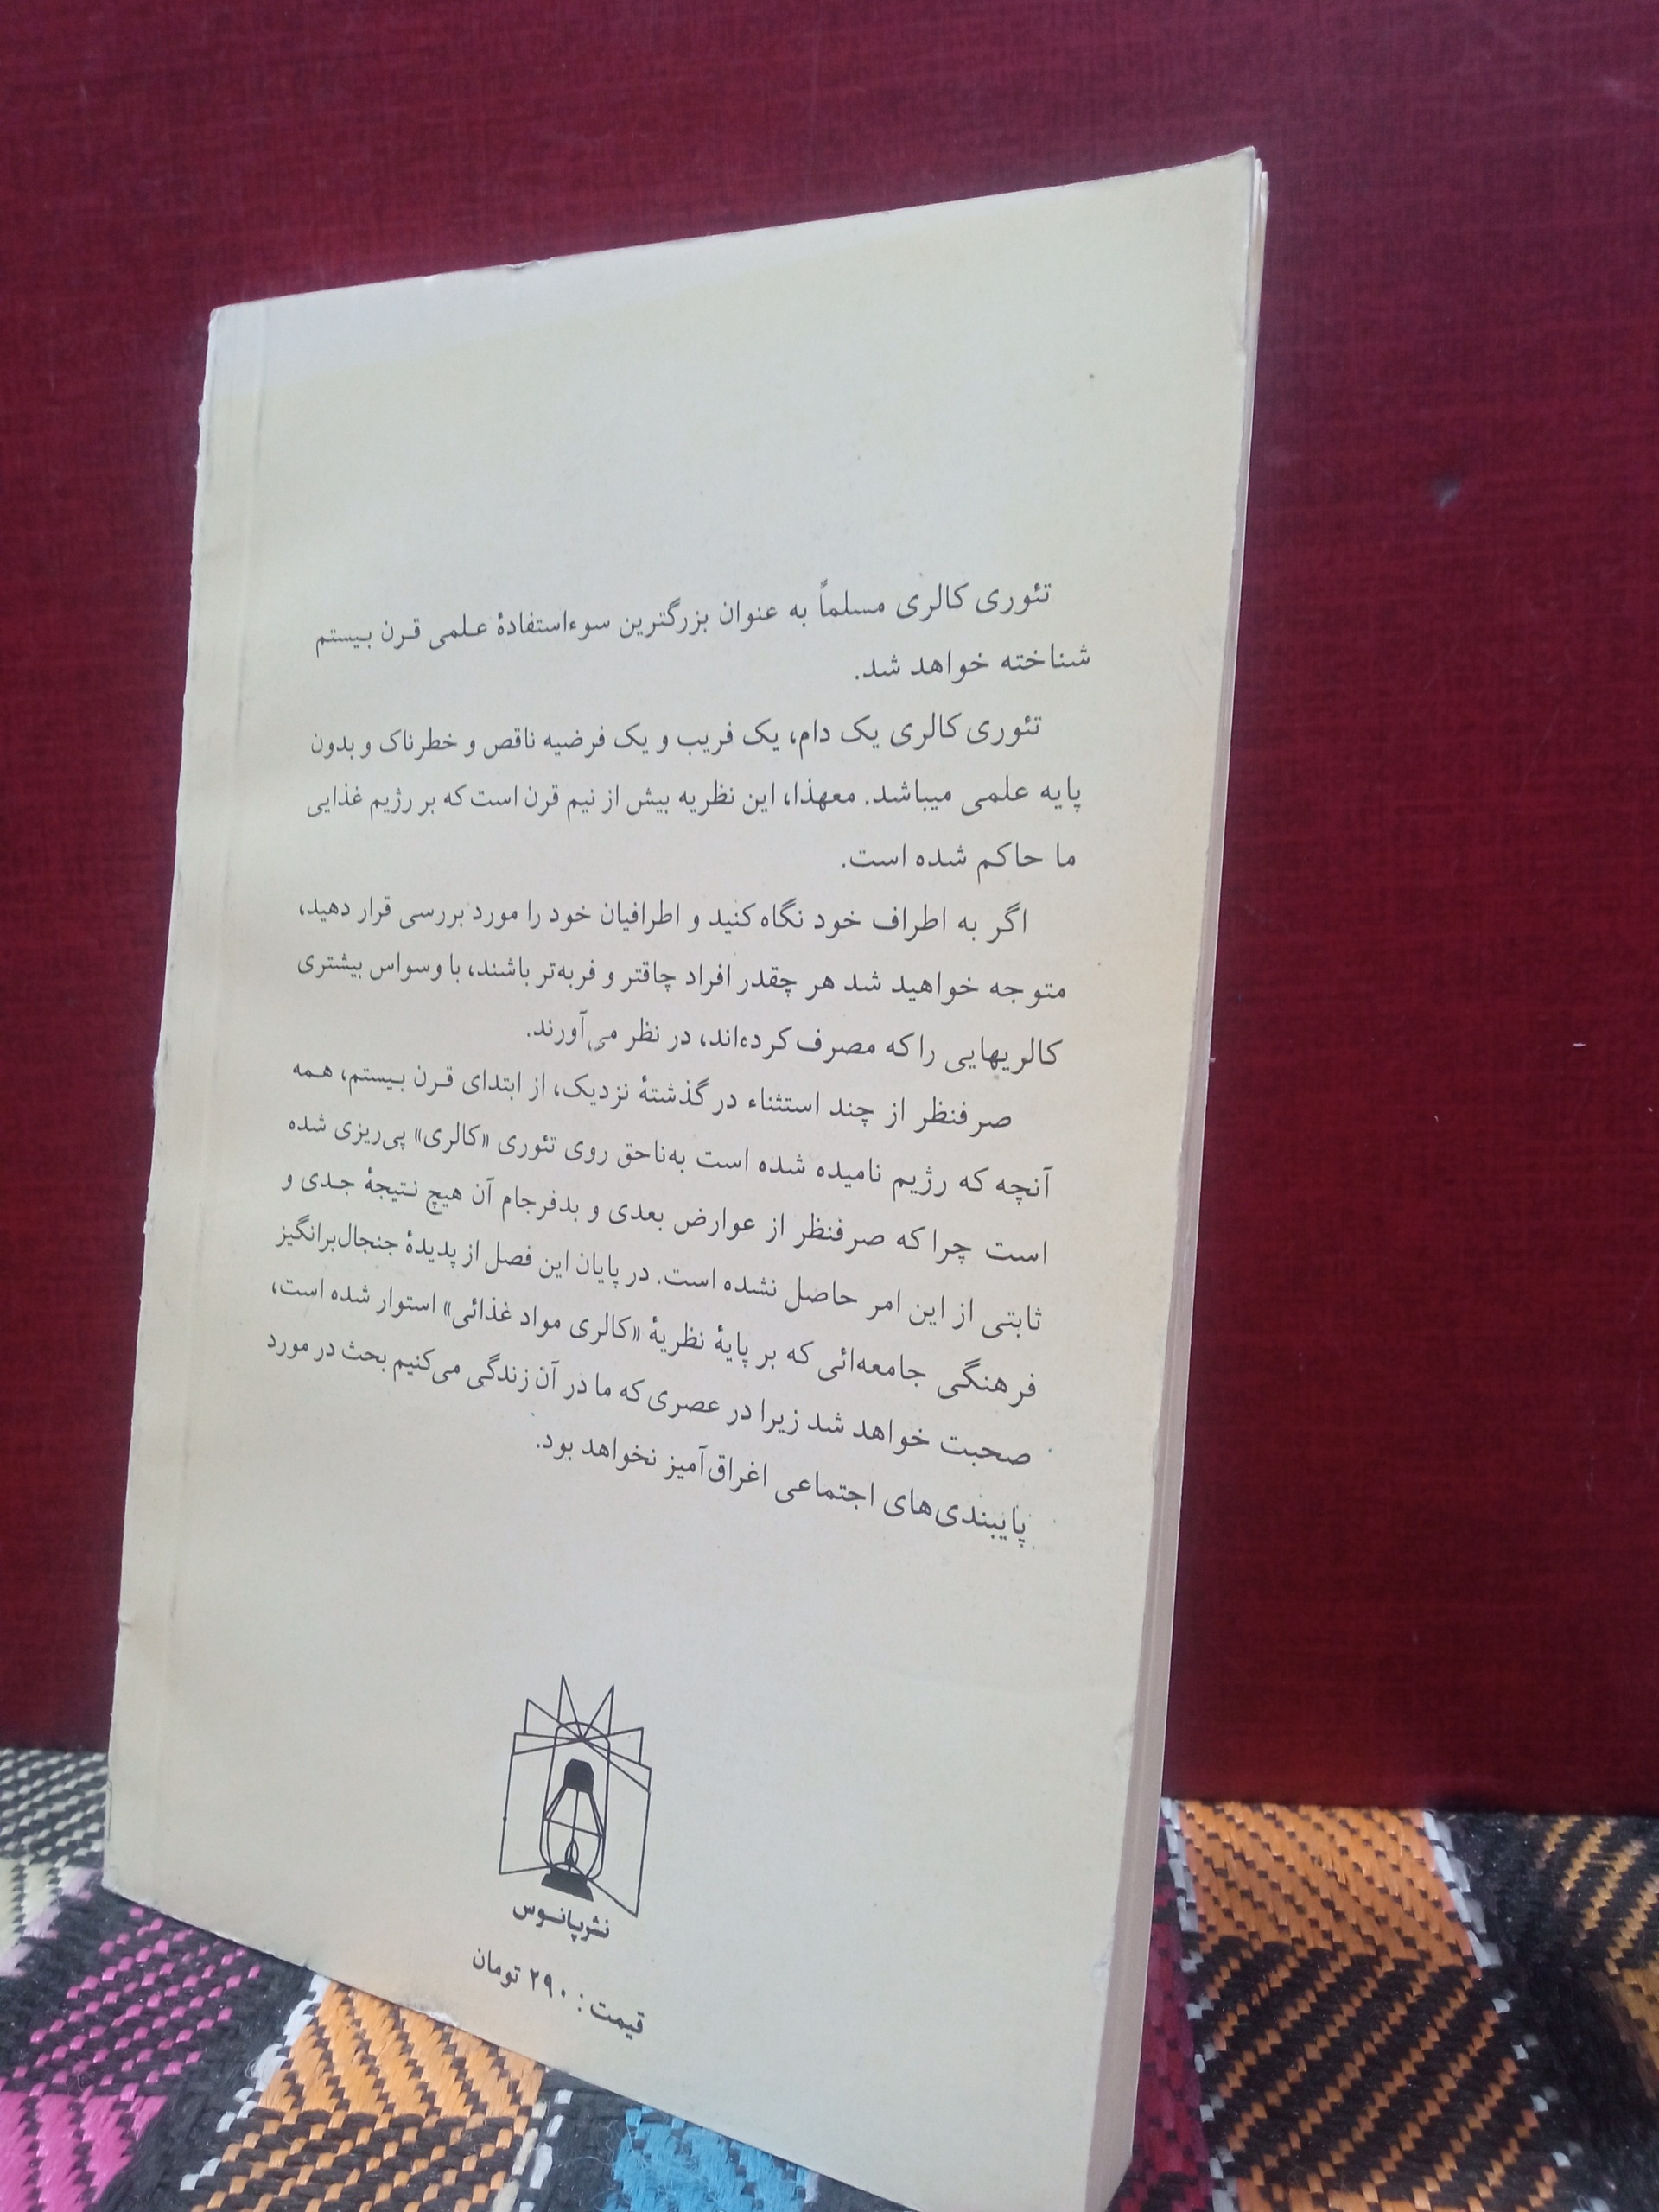 تئوری کالری مسلماً به عنوان بزرگترین سوءاستفادهٔ علمی قرن بیستم
شناخته خواهد شد.
تئوری کالری یک دام، یک فریب و یک فرضیه ناقص و خطرناک و بدون
پایه علمی میباشد. معهذا، این نظریه بیش از نیم قرن است که بر رژیم غذایی
ما حاکم شده است.
اگر به اطراف خود نگاه کنید و اطرافیان خود را مورد بررسی قرار دهید،
متوجه خواهید شد هر چقدر افراد چاقتر و فربه‌تر باشند، با وسواس بیشتری
کالریهایی را که مصرف کرده‌اند، در نظر می‌آورند.
صرفنظر از چند استثناء در گذشتهٔ نزدیک، از ابتدای قرن بیستم، همه
آنچه که رژیم نامیده شده است به‌ناحق روی تئوری «کالری» پی‌ریزی شده
است چرا که صرفنظر از عوارض بعدی و بدفرجام آن هیچ نتیجهٔ جدی و
ثابتی از این امر حاصل نشده است. در پایان این فصل از پدیدهٔ جنجال‌برانگیز
فرهنگی جامعه‌ائی که بر پایهٔ نظریهٔ «کالری مواد غذائی» استوار شده است،
صحبت خواهد شد زیرا در عصری که ما در آن زندگی می‌کنیم بحث در مورد
پایبندی‌های اجتماعی اغراق‌آمیز نخواهد بود.
نشر پانوس
قیمت: ۲۹۰ تومان